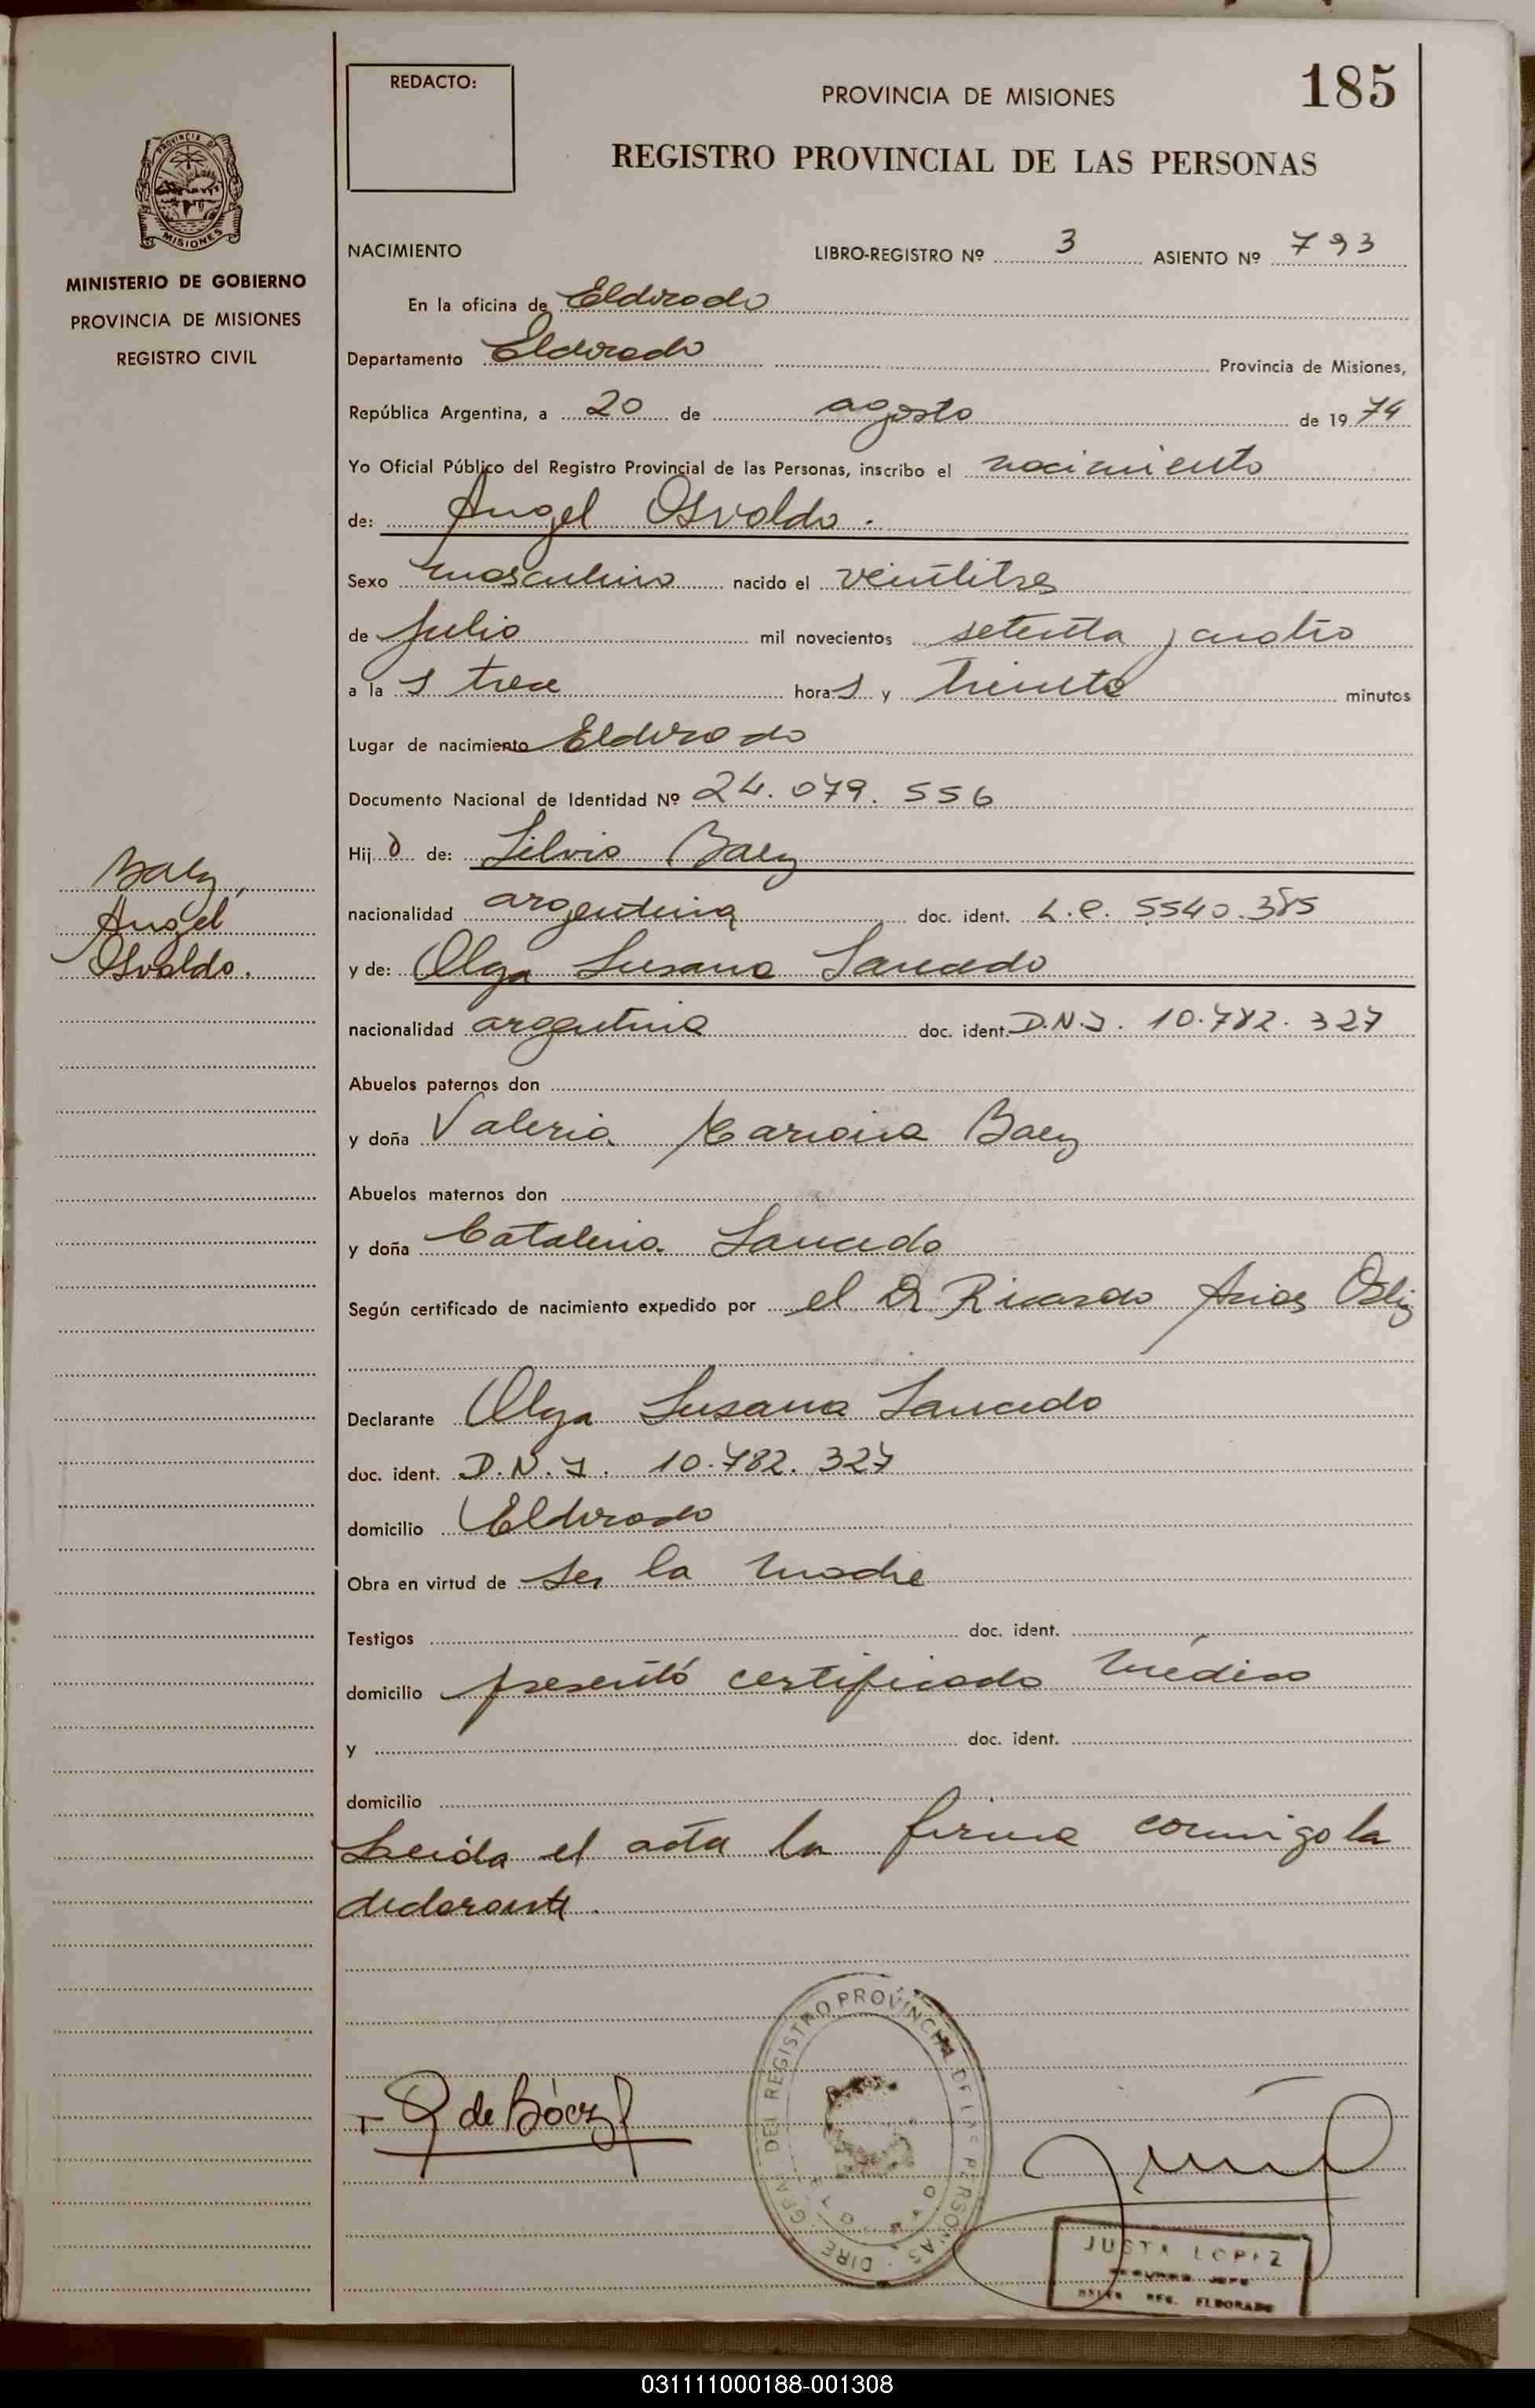 REDACTO:
PROVINCIA DE MISIONES
185
REGISTRO PROVINCIAL DE LAS PERSONAS
PROVINCIA DE
MISIONES
MINISTERIO DE GOBIERNO
PROVINCIA DE MISIONES
REGISTRO CIVIL
NACIMIENTO LIBRO-REGISTRO Nº 3 ASIENTO Nº 793
En la oficina de Eldorado
Departamento Eldorado Provincia de Misiones,
República Argentina, a 20 de agosto de 1974
Yo Oficial Público del Registro Provincial de las Personas, inscribo el nacimiento
de: Angel Osvaldo.
Sexo masculino nacido el veintitres
de Julio mil novecientos setenta y cuatro
a la s trece hora s y treinta minutos
Lugar de nacimiento Eldorado
Documento Nacional de Identidad Nº 24.079.556
Hij o de: Silvio Baez
Baez,
Angel
Osvaldo.
nacionalidad argentina doc. ident. L.E. 5540.385
y de: Olga Susana Saucedo
nacionalidad argentina doc. ident. D.N.I. 10.782.327
Abuelos paternos don
y doña Valeria Baez
Abuelos maternos don
y doña Catalina Saucedo
Según certificado de nacimiento expedido por el Dr Ricardo Arias
Declarante Olga Susana Saucedo
doc. ident. D.N.I. 10.782.327
domicilio Eldorado
Obra en virtud de ser la madre
Testigos doc. ident.
domicilio presentó certificado médico
y doc. ident.
domicilio
Leída el acta la firma conmigo la
declarante.
de Báez
DIREC. GRAL. DEL REGISTRO PROVINCIAL DE LAS PERSONAS
JUSTA LOPEZ
SEGUNDO JEFE
REG. ELDORADO
031111000188-001308